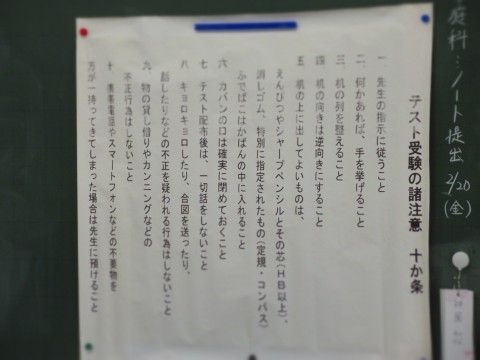 テスト受験の諸注意 十か条
一 先生の指示に従うこと
二 何かあれば、手を挙げること
三 机の列を整えること
四 机の向きは逆向きにすること
五 机の上に出してよいものは、
えんぴつやシャープペンシルとその芯(HB以上)、
消しゴム、特別に指定されたもの(定規・コンパス)
ふでばこはかばんの中に入れること
六 カバンの口は確実に閉めておくこと
七 テスト配布後は、一切話をしないこと
八 キョロキョロしたり、合図を送ったり、
話したりなどの不正を疑われる行為はしないこと
九 物の貸し借りやカンニングなどの
不正行為はしないこと
十 携帯電話やスマートフォンなどの不要物を
万が一持ってきてしまった場合は先生に預けること
庭科:ノート提出 2/20(金)